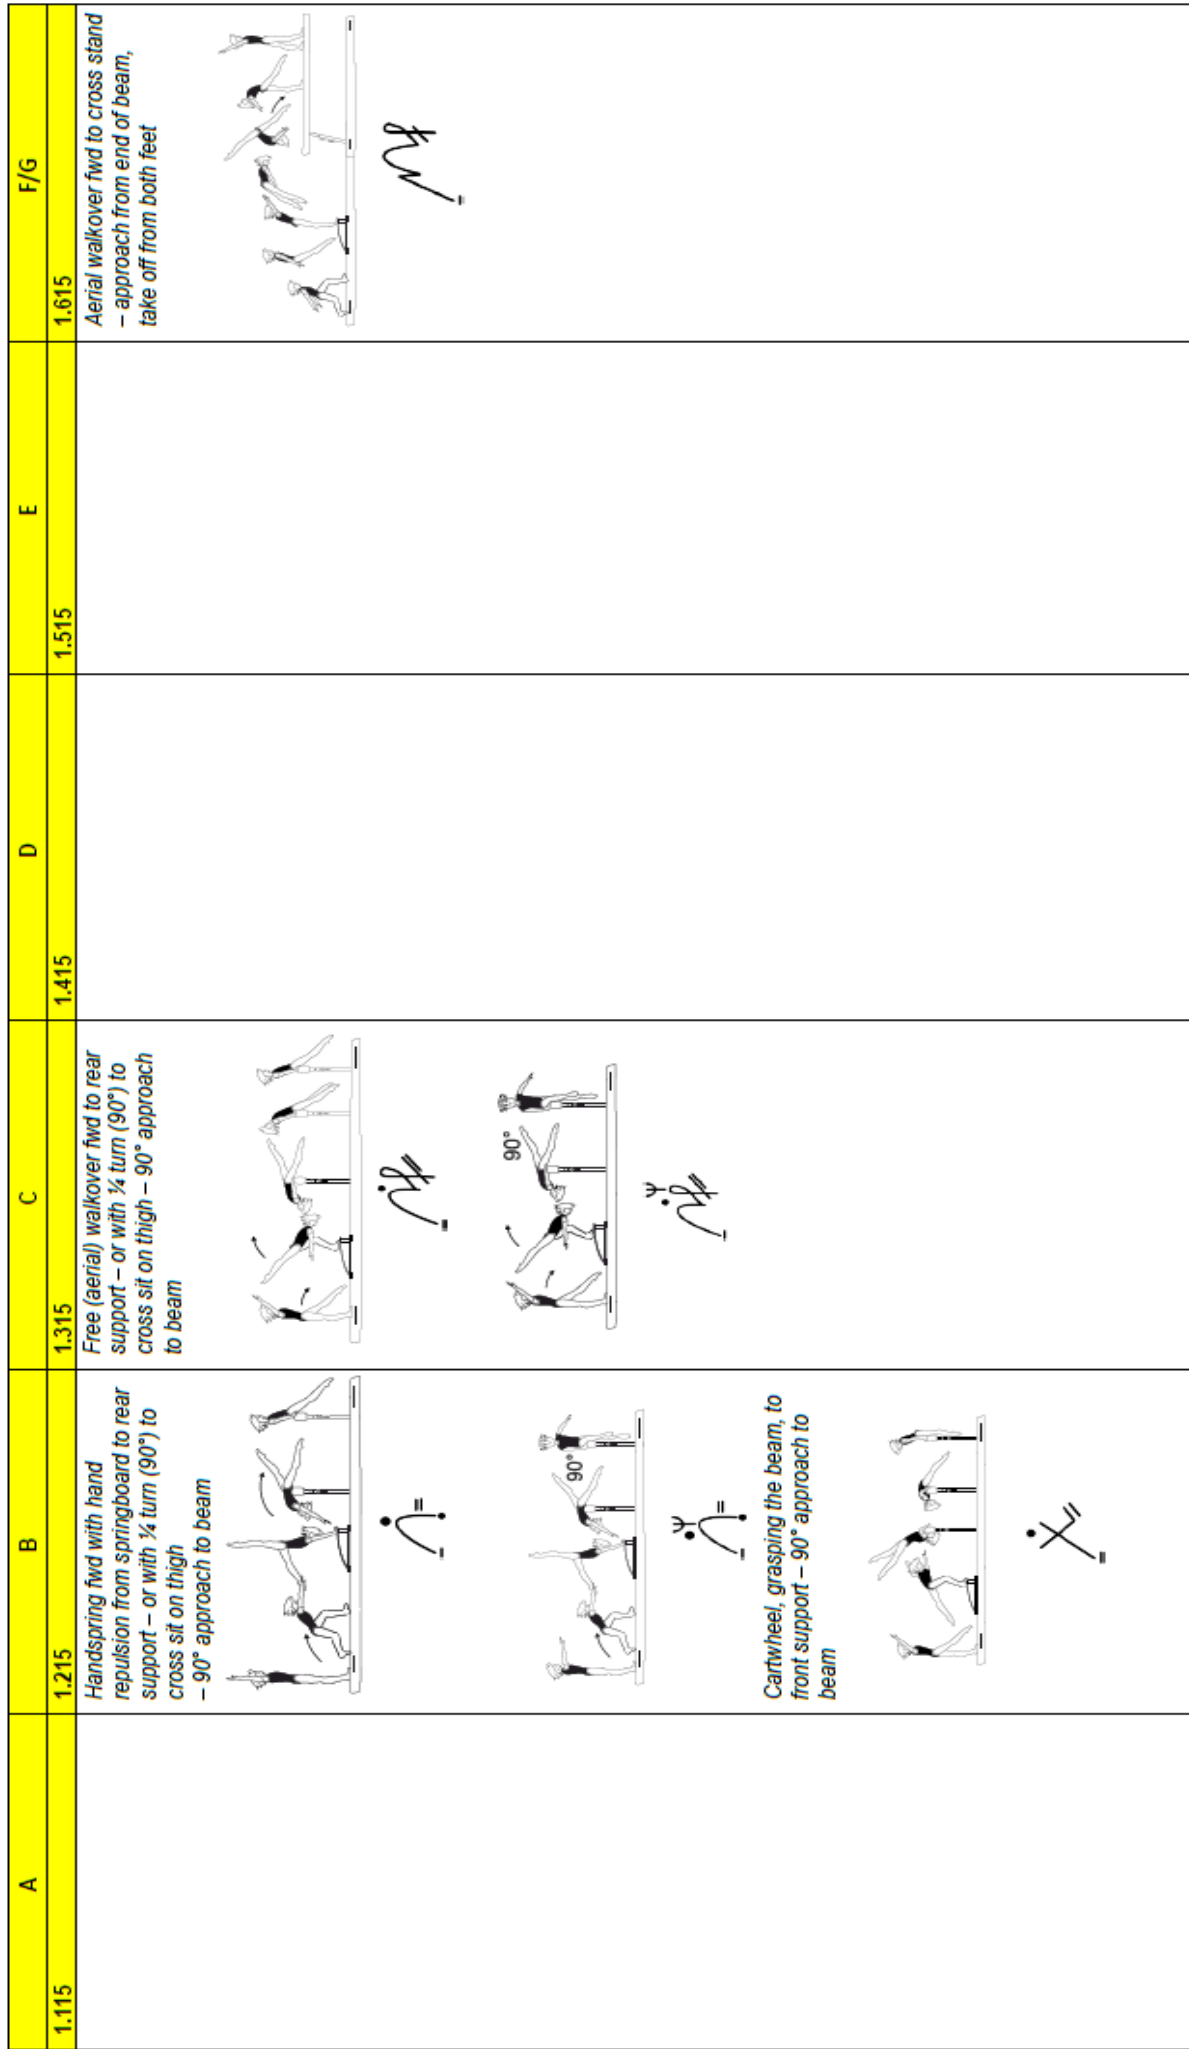 A
B
C
D
E
F/G
1.115
1.215
1.315
1.415
1.515
1.615
Handspring fwd with hand
repulsion from springboard to rear
support – or with ¼ turn (90°) to
cross sit on thigh
– 90° approach to beam
90°
Cartwheel, grasping the beam, to
front support – 90° approach to
beam
Free (aerial) walkover fwd to rear
support – or with ¼ turn (90°) to
cross sit on thigh – 90° approach
to beam
90°
Aerial walkover fwd to cross stand
– approach from end of beam,
take off from both feet